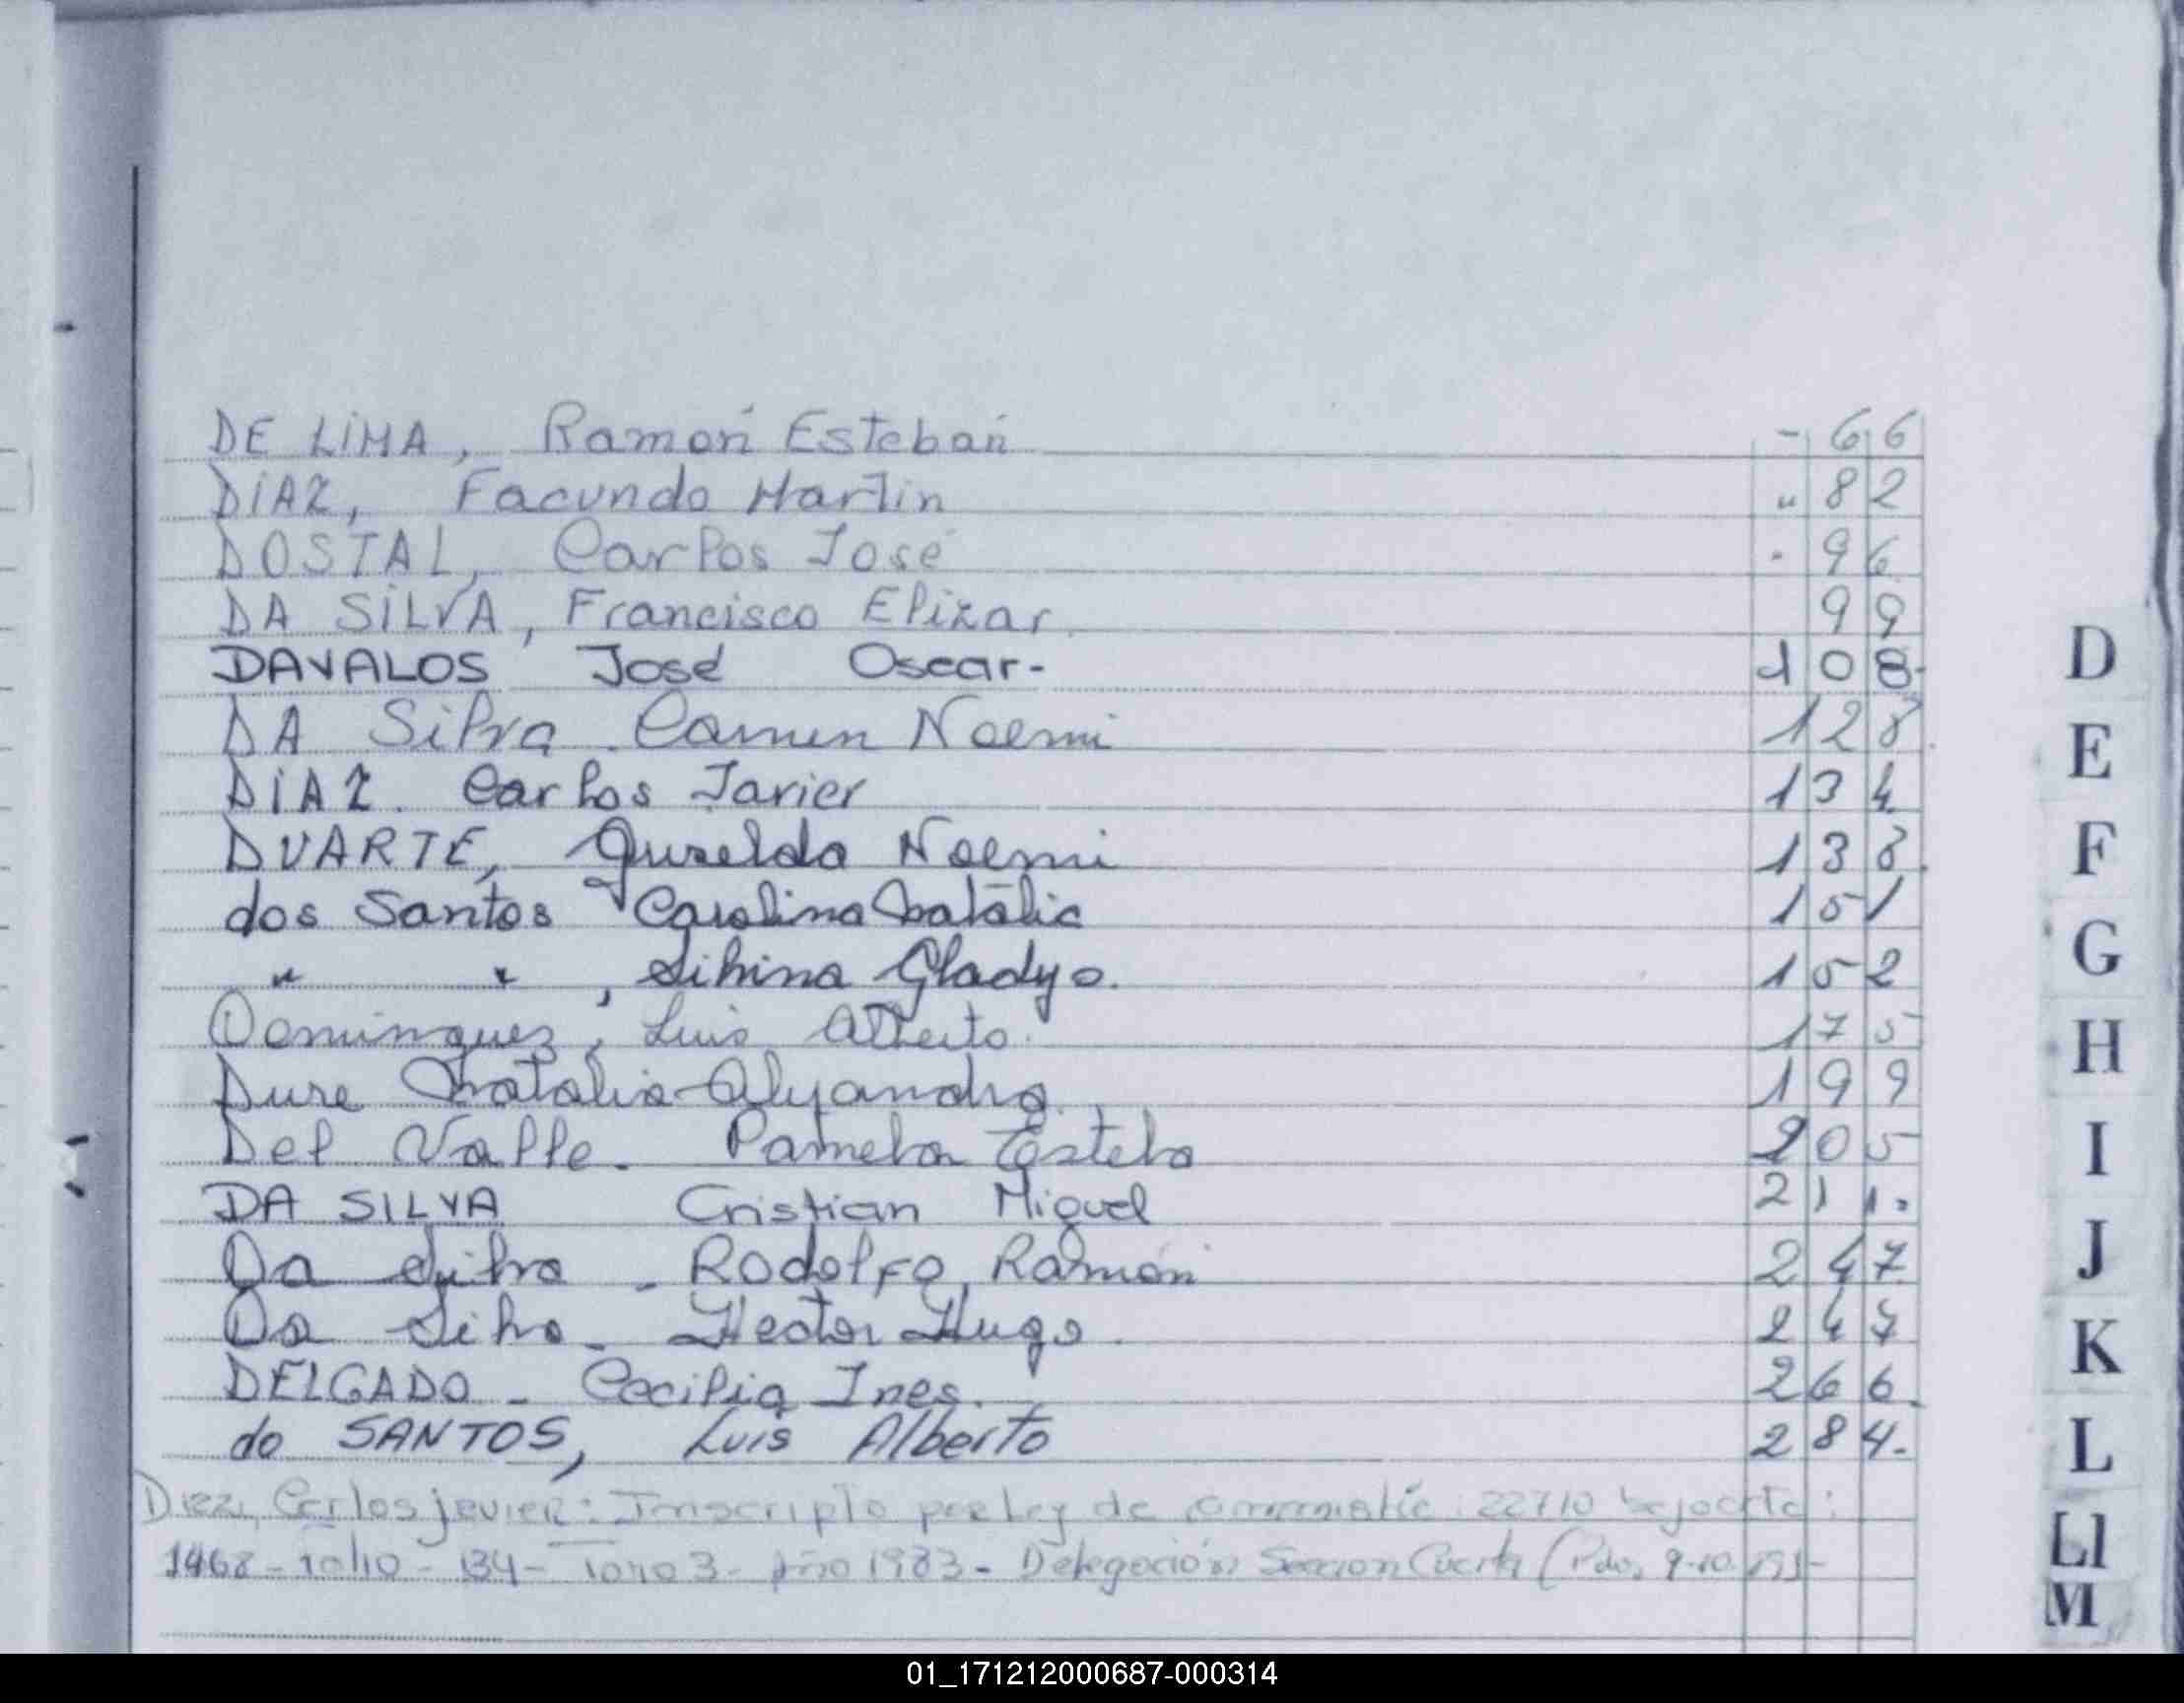 DE LIMA, Ramón Esteban - 66
DIAZ, Facundo Martin " 82
DOSTAL, Carlos José - 96
DA SILVA, Francisco Elizar 99
DAVALOS José Oscar- 108-
DA Silva Carmen Noemi 128
DIAZ. Carlos Javier 134
DUARTE, Noemi 138
dos Santos Carolina Natalia 151
" " , Silvina Gladys. 152
Dominguez, Luis Alberto. 175
Dure Natalia Alejandra 199
Del Valle. Pamela Estela 205
DA SILVA Cristian Miguel 211.
Da Silva - Rodolfo Ramón 247
Da Silva - Hector Hugo 247
DELGADO - Cecilia Ines. 266
do SANTOS, Luis Alberto 284.
Diaz, Carlos Javier: Inscripto por Ley de amnistia 22710 bajo acta:
1468 - Folio - 134 - Tomo 3 - Año 1983 - Delegación Seccion Cuarta (Pdas,
D
E
F
G
H
I
J
K
L
Ll
M
01_171212000687-000314